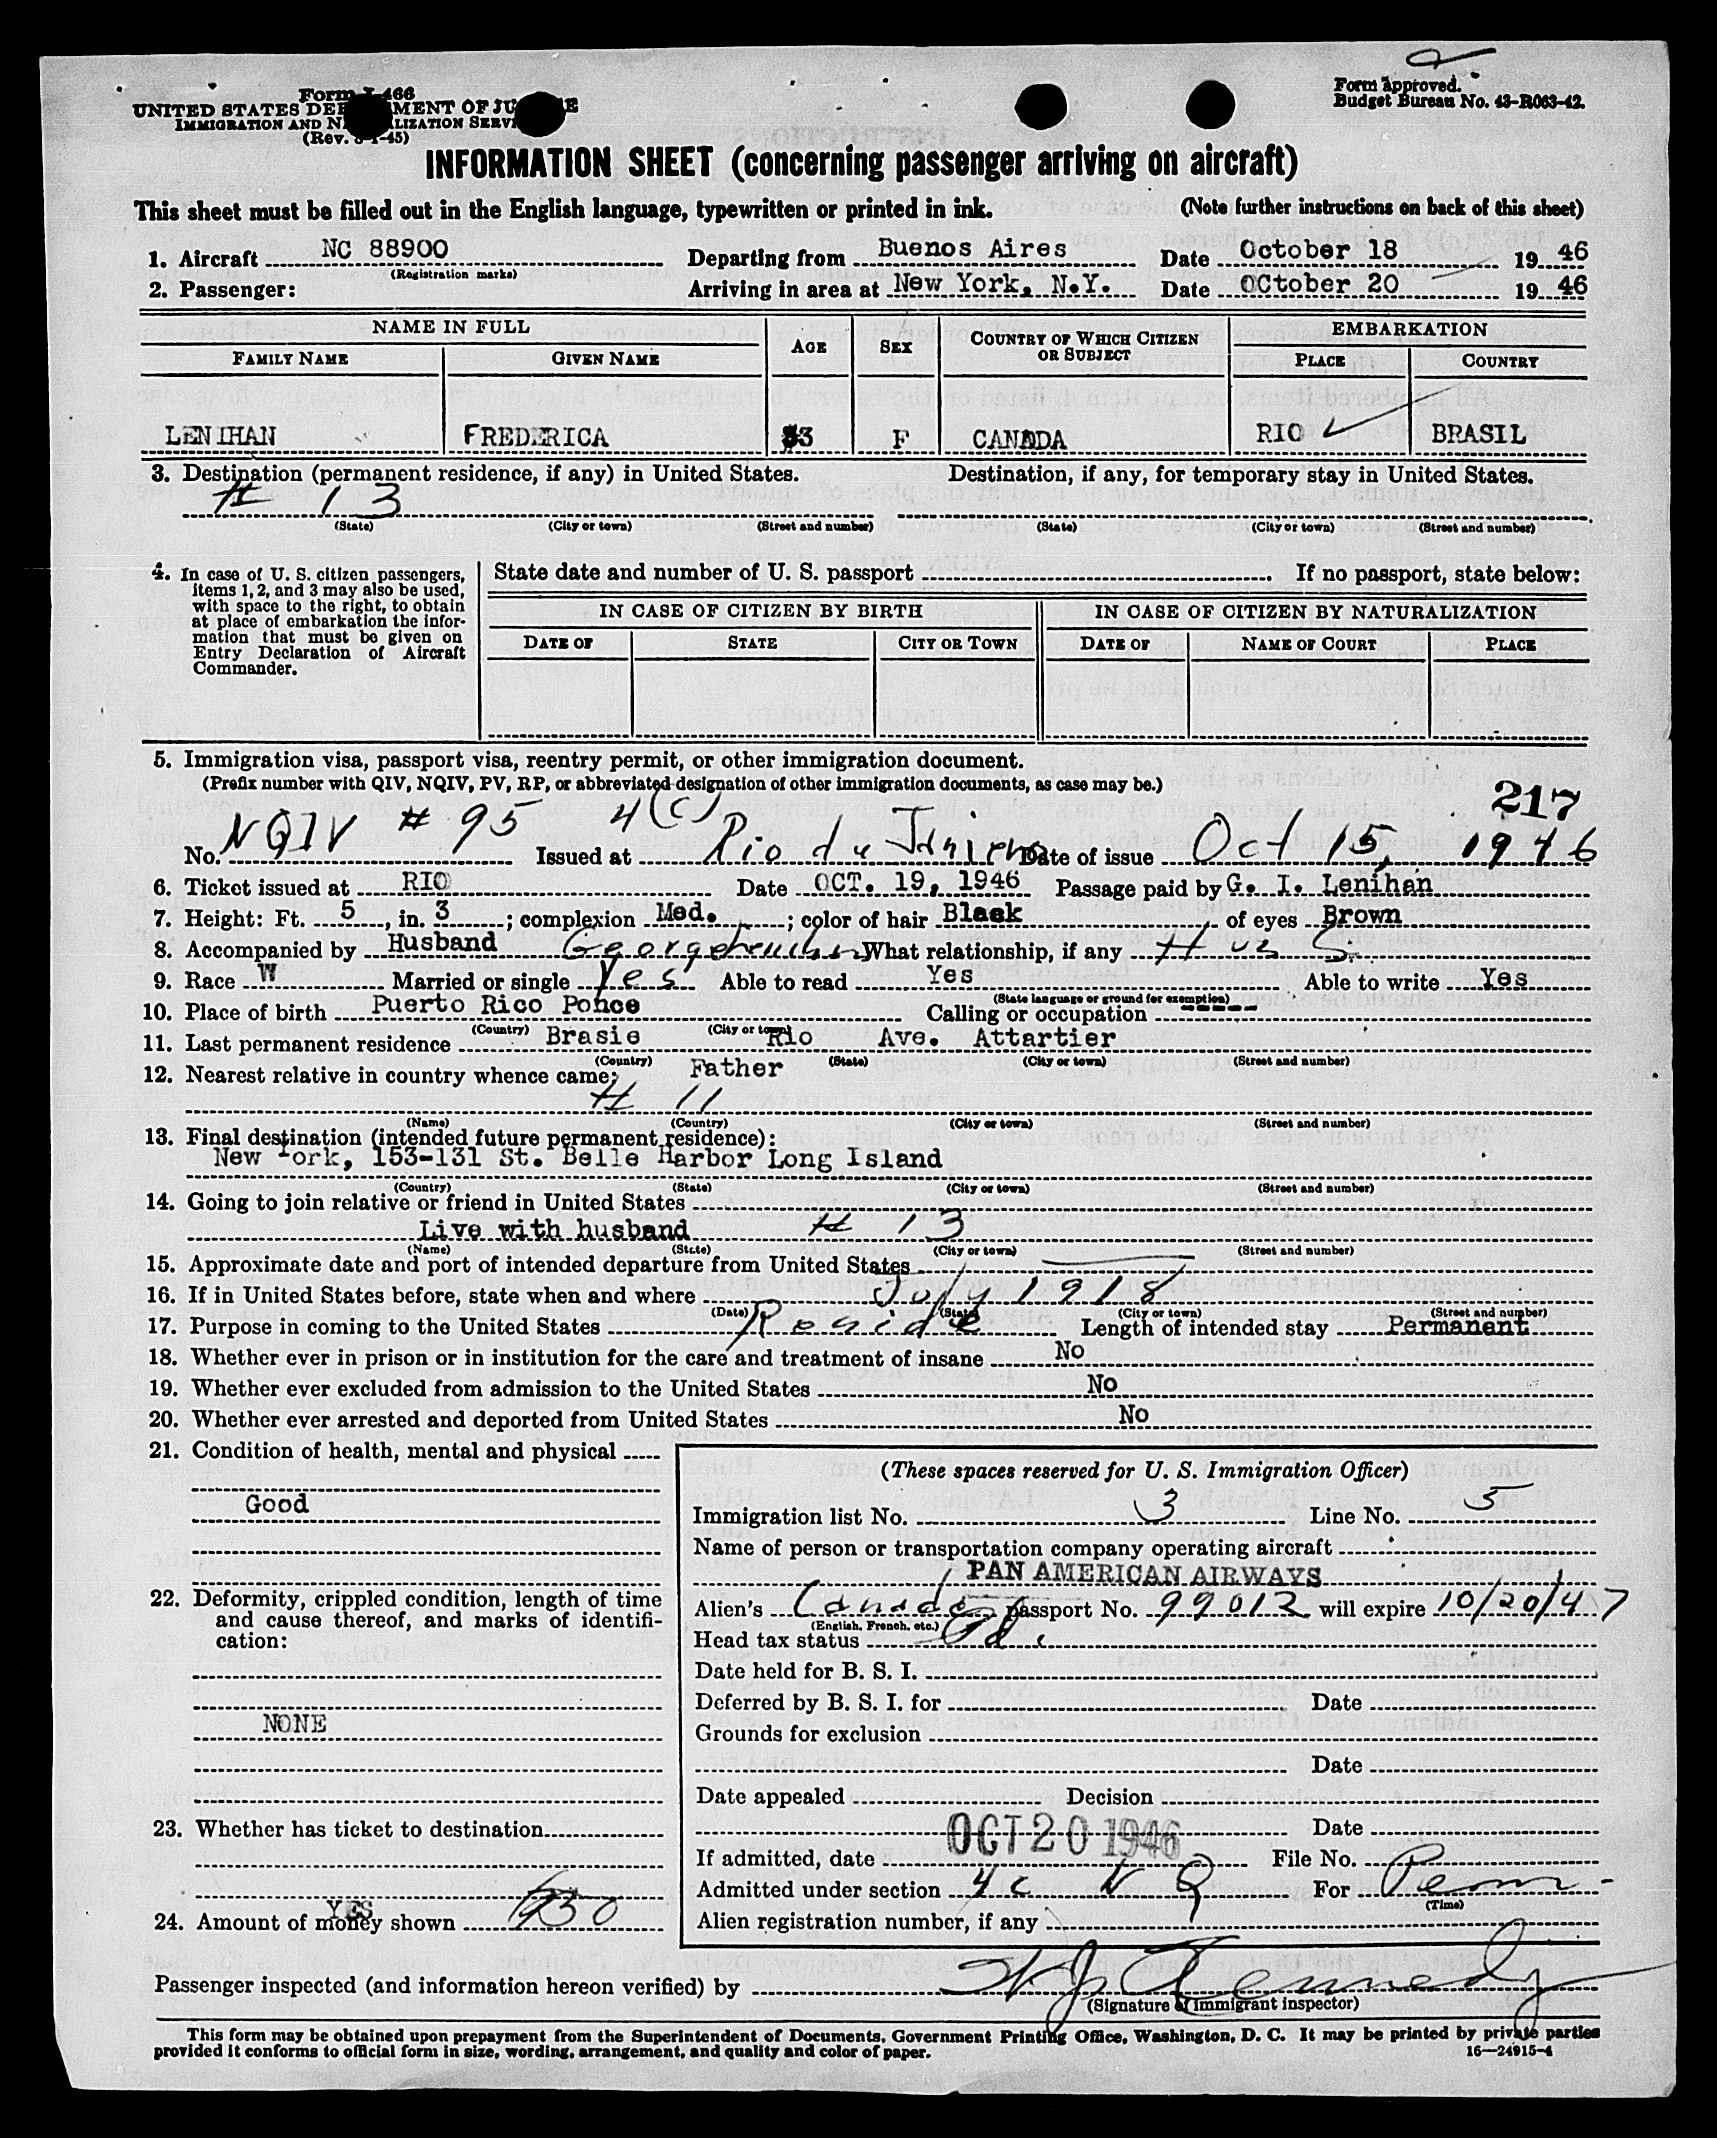 Form I-466
UNITED STATES DEPARTMENT OF JUSTICE
IMMIGRATION AND NATURALIZATION SERVICE
(Rev. 8-1-45)
Form approved.
Budget Bureau No. 43-R063-42.
INFORMATION SHEET (concerning passenger arriving on aircraft)
This sheet must be filled out in the English language, typewritten or printed in ink. (Note further instructions on back of this sheet)
1. Aircraft NC 88900 Departing from Buenos Aires Date October 18 1946
(Registration marks)
2. Passenger: Arriving in area at New York, N.Y. Date OCtober 20 1946
NAME IN FULL AGE SEX COUNTRY OF WHICH CITIZEN OR SUBJECT EMBARKATION
FAMILY NAME GIVEN NAME PLACE COUNTRY
LENIHAN FREDERICA 33 F CANADA RIO BRASIL
3. Destination (permanent residence, if any) in United States. Destination, if any, for temporary stay in United States.
# 13
(State) (City or town) (Street and number) (State) (City or town) (Street and number)
4. In case of U. S. citizen passengers, items 1, 2, and 3 may also be used, with space to the right, to obtain at place of embarkation the information that must be given on Entry Declaration of Aircraft Commander.
State date and number of U. S. passport If no passport, state below:
IN CASE OF CITIZEN BY BIRTH IN CASE OF CITIZEN BY NATURALIZATION
DATE OF STATE CITY OR TOWN DATE OF NAME OF COURT PLACE
5. Immigration visa, passport visa, reentry permit, or other immigration document.
(Prefix number with QIV, NQIV, PV, RP, or abbreviated designation of other immigration documents, as case may be.)
217
No. NQIV # 95 4(c) Issued at Rio de Janiero Date of issue Oct 15, 1946
6. Ticket issued at RIO Date OCT. 19, 1946 Passage paid by G. I. Lenihan
7. Height: Ft. 5, in. 3; complexion Med.; color of hair Black of eyes Brown
8. Accompanied by Husband George What relationship, if any Hus
9. Race W Married or single Yes Able to read Yes Able to write Yes
(State language or ground for exemption)
10. Place of birth Puerto Rico Ponce Calling or occupation -----
(Country) (City or town)
11. Last permanent residence Brasie Rio Ave. Attartier
(Country) (State) (City or town) (Street and number)
12. Nearest relative in country whence came: Father
# 11
(Name) (Country) (City or town) (Street and number)
13. Final destination (intended future permanent residence):
New York, 153-131 St. Belle Harbor Long Island
(Country) (State) (City or town) (Street and number)
14. Going to join relative or friend in United States
Live with husband # 13
(Name) (State) (City or town) (Street and number)
15. Approximate date and port of intended departure from United States —
16. If in United States before, state when and where July 1918
(Date) (State) (City or town) (Street and number)
17. Purpose in coming to the United States Reside Length of intended stay Permanent
18. Whether ever in prison or in institution for the care and treatment of insane No
19. Whether ever excluded from admission to the United States No
20. Whether ever arrested and deported from United States No
21. Condition of health, mental and physical
Good
22. Deformity, crippled condition, length of time and cause thereof, and marks of identification:
NONE
23. Whether has ticket to destination
YES
24. Amount of money shown
(These spaces reserved for U. S. Immigration Officer)
Immigration list No. 3 Line No. 5
Name of person or transportation company operating aircraft
PAN AMERICAN AIRWAYS
Alien's Canada passport No. 99012 will expire 10/20/47
(English, French, etc.)
Head tax status Pd.
Date held for B. S. I.
Deferred by B. S. I. for Date
Grounds for exclusion
Date
Date appealed Decision
Date
If admitted, date OCT 20 1946 File No.
Admitted under section 4c NQ For Perm-
(Time)
Alien registration number, if any
Passenger inspected (and information hereon verified) by Kennedy
(Signature of immigrant inspector)
This form may be obtained upon prepayment from the Superintendent of Documents, Government Printing Office, Washington, D. C. It may be printed by private parties
provided it conforms to official form in size, wording, arrangement, and quality and color of paper. 16—24915-4